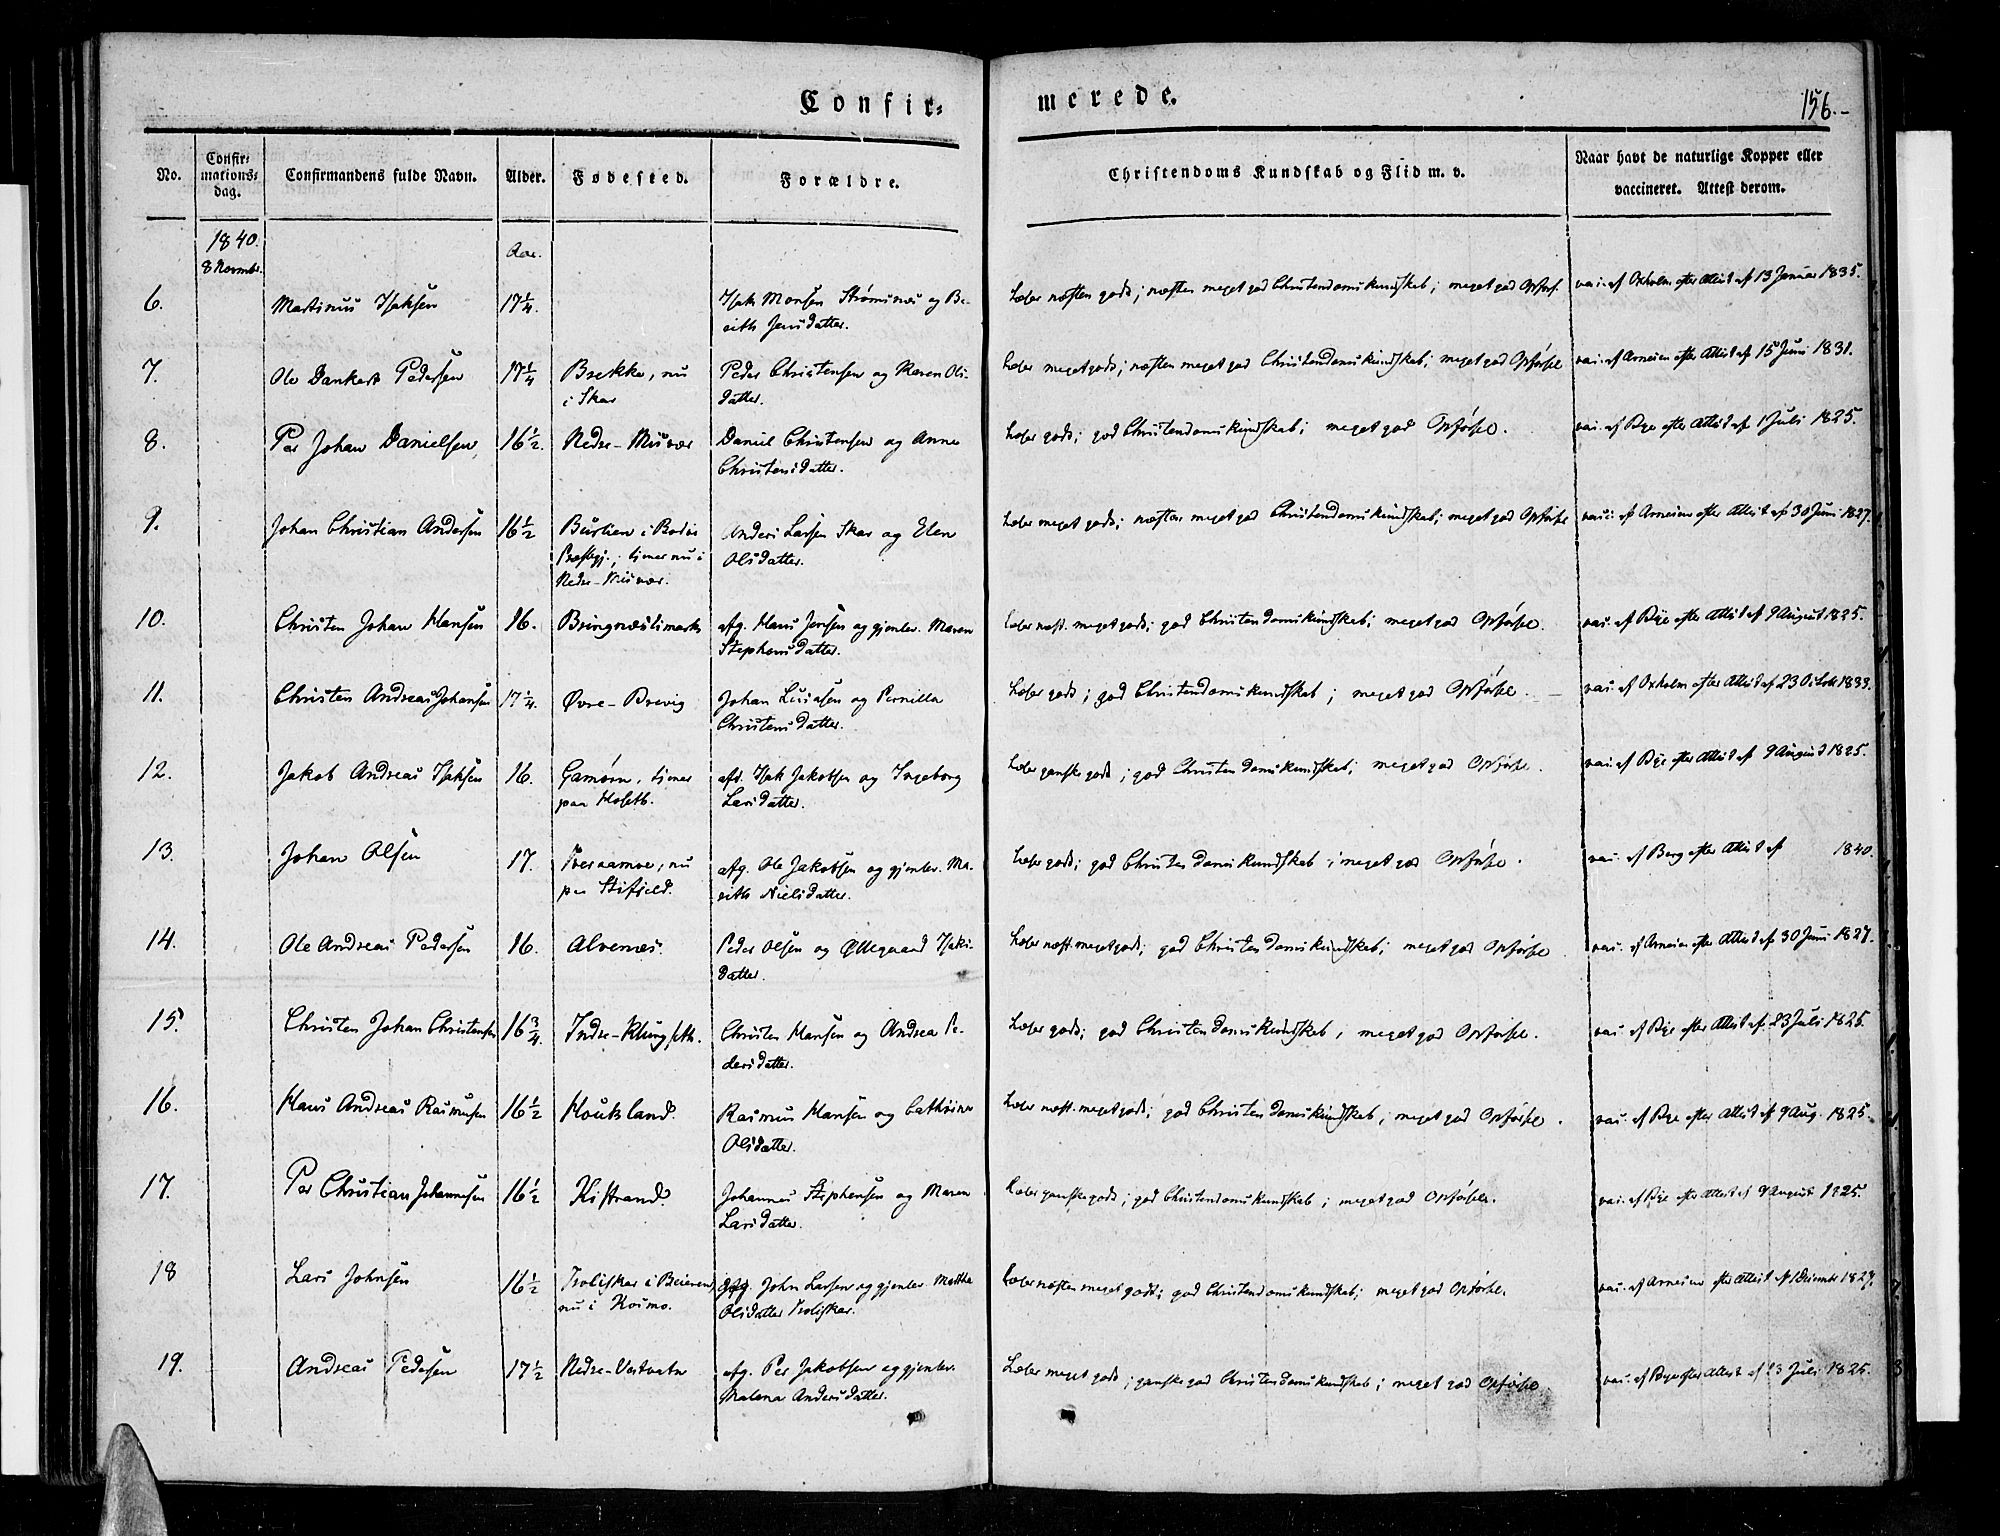 Confir-
merede.
156.-
No.
Confir-
mations-
dag.
Confirmandens fulde Navn.
Alder.
Fødested.
Forældre.
Christendoms Kundskab og Flid m. v.
Naar havt de naturlige Kopper eller
vaccineret. Attest derom.
1840.
8 Novmbr.
Aar.
6.
Martinus Isaksen
17 1/4.
Isak Monsen Strømsnes og Be-
reith Jensdatter.
Læser næsten godt; næsten meget god Christendomskundskab; meget god Opførs.
vac. af Oxholm efter Attest af 13 Januar 1835.
7.
Ole Dankert Pedersen
17 1/4
Brekke, nu
i Skar
Peder Christensen og Karen Ols-
datter.
Læser meget godt; næsten meget god Christendomskundskab; meget god Opførsel
vac. af Arnesen efter Attest af 15 Juni 1831.
8.
Per Johan Danielsen,
16 1/2.
Nedre-Misvær
Daniel Christensen og Anne
Christensdatter.
Læser godt; god Christendomskundskab; meget god Opførsel.
vac. af Bye efter Attest af 1 Juli 1825.
9.
Johan Christian Andersen
16 1/2
i Bodøe
Præstegj.; tjener nu i
Nedre-Misvær.
Anders Larsen Skar og Elen
Olsdatter.
Læser meget godt; næsten meget god Christendomskundskab; meget god Opførsel
vacci. af Arnesen efter Attest af 30 Juni 1827.
10.
Christen Johan Hansen
16.
Bringnæslimarken
afg. Hans Jensen og gjenlev. Maren
Stephensdatter.
Læser næst. meget godt; god Christendomskundskab; meget god Opførsel.
vac. af Bye efter Attest af 9 August 1825.
11.
Christen Andreas Johansen
17 1/4.
Øvre-Brevig
Johan Lucasen og Pernilla
Christensdatter.
Læser godt; god Christendomskundskab; meget god Opførsel.
vac. af Oxholm efter Attest af 23 Octob. 1833.
12.
Jakob Andreas Isaksen
16.
Gamøen, tjener
paa Hoseth.
afd. Isak Jakobsen og Ingeborg
Larsdatter.
Læser ganske godt; god Christendomskundskab; meget god Opførsel.
vac. af Bye efter Attest af 9 August 1825.
13.
Johan Olsen
17.
nu
paa Stifjeld.
afg. Ole Jakobsen og gjenlev. Ma-
rith Nielsdatter.
Læser godt; god Christendomskundskab; meget god Opførsel.
vac. af Berg efter Attest af 1840.
14.
Ole Andreas Pedersen
16.
Alvenes.
Peder Olsen og Øllegaard Isaks-
datter.
Læser næst. meget godt; god Christendomskundskab; meget god Opførsel.
vac. af Arnesen efter Attest af 30 Juni 1827.
15.
Christen Johan Christensen
16 3/4.
Indre-Klungseth.
Christen Hansen og Andrea Pe-
dersdatter.
Læser godt; god Christendomskundskab; meget god Opførsel.
vac. af Bye efter Attest af 23 Juli 1825.
16.
Hans Andreas Rasmusen
16 1/2
Koukland.
Rasmus Hansen og Cathrine
Olsdatter.
Læser næst. meget godt; god Christendomskundskab; meget god Opførsel.
vac. af Bye efter Attest af 9 Aug. 1825.
17.
Per Christian Johannesen
16 1/2
Kistrand.
Johannes Stephensen og Maren
Larsdatter.
Læser ganske godt; god Christendomskundskab; meget god Opførsel.
vac. af Bye efter Attest af 9 August 1825.
18
Lars Johnsen
16 1/2
Tvoliskar i Beieren,
nu i Kosmo.
afg. John Larsen og gjenlev. Martha
Olsdatter Tvoliskar.
Læser næsten meget godt; god Christendomskundskab; meget god Opførsel.
vac. af Arnesen efter Attest af 1 Decembr 1827.
19.
Andreas Pedersen
17 1/2
Nedre-Vestvatn
afg. Per Jakobsen og gjenlev.
Malena Andersdatter.
Læser meget godt; ganske god Christendomskundskab; meget god Opførsel.
vac. af Bye efter Attest af 23 Juli 1825.